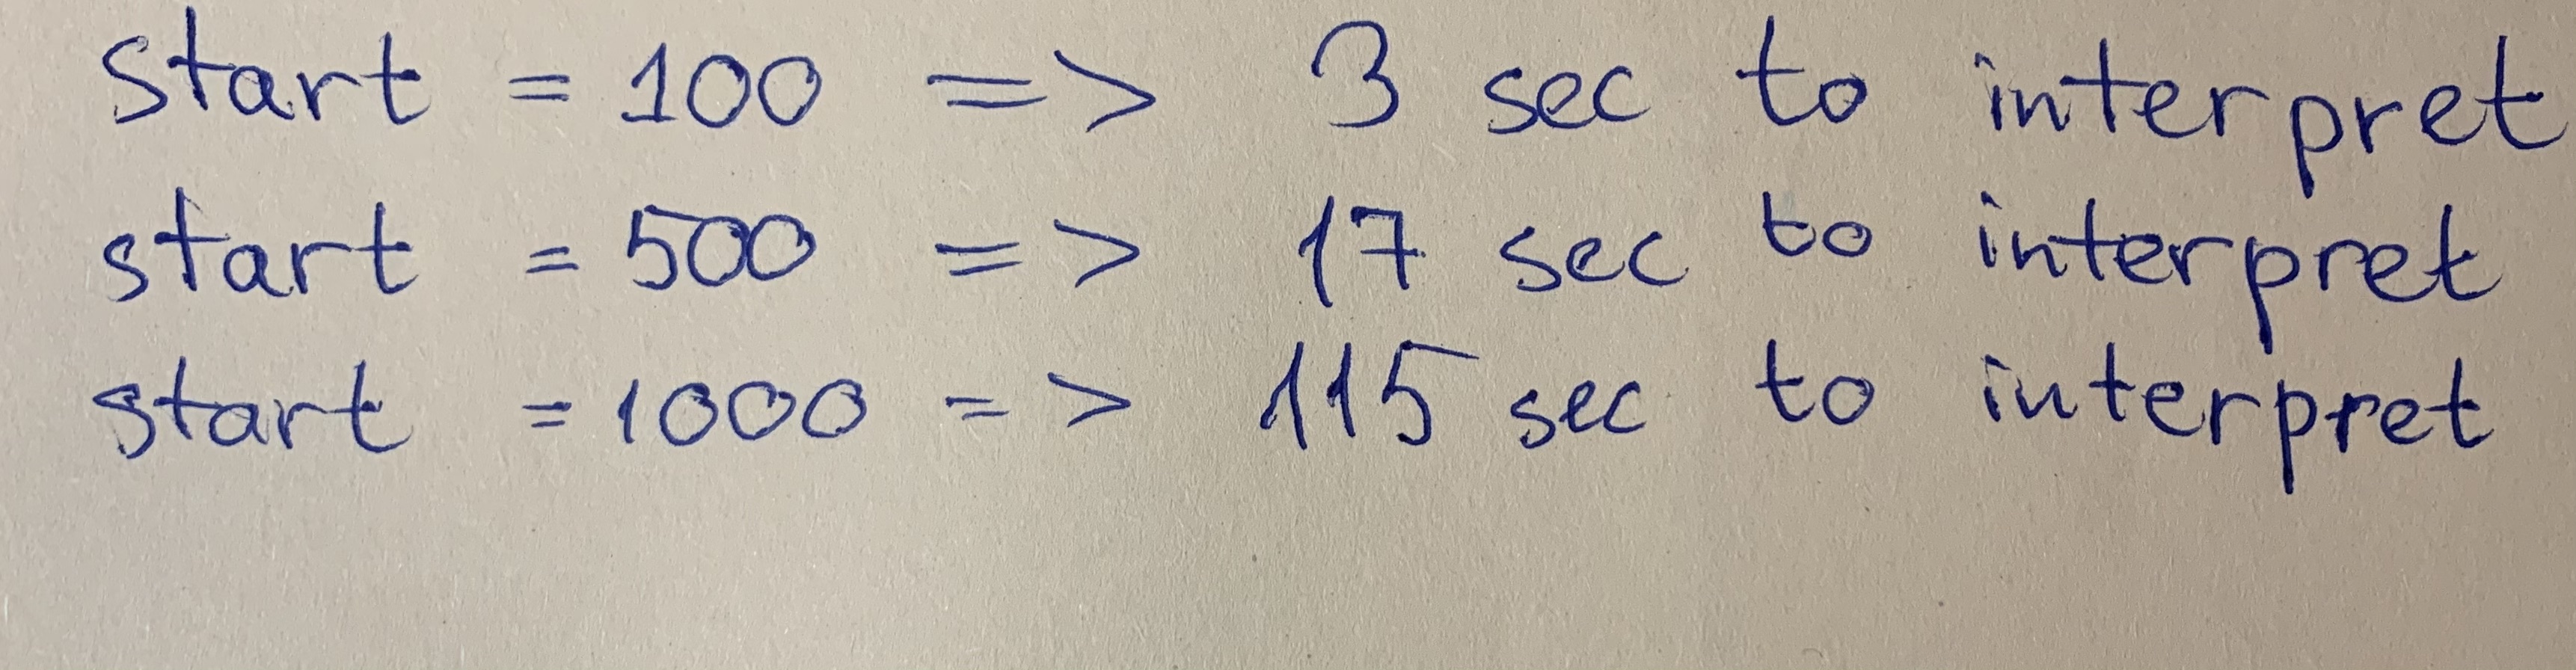 start = 100 => 3 sec to interpret
start = 500 => 17 sec to interpret
start = 1000 => 115 sec to interpret